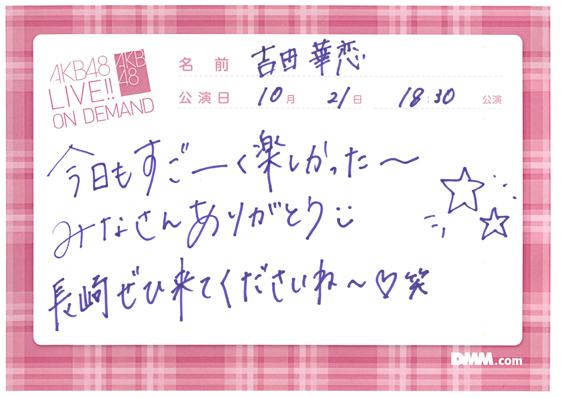 AKB48
LIVE!!
ON DEMAND
AKB
48
名前 吉田華恋
公演日 10月 21日 18:30 公演
今日もすごーく楽しかった〜
みなさんありがとう
長崎ぜひ来てくださいね〜♡笑
DMM.com